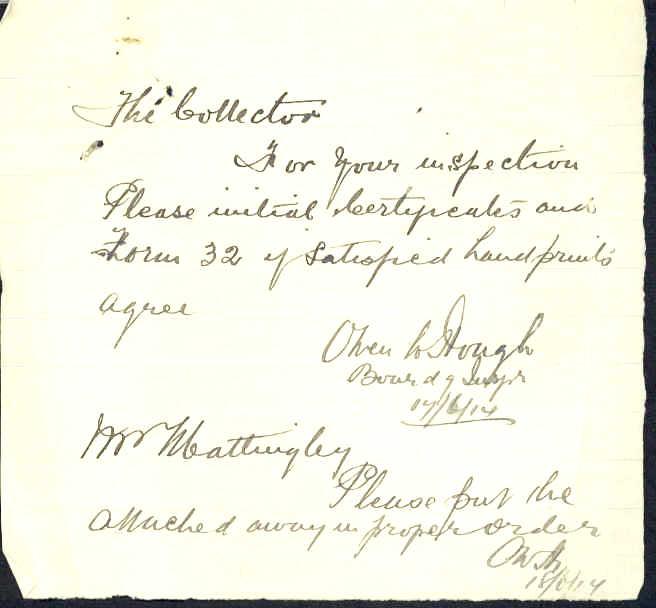 The Collector
For your inspection
Please initial Certificates and
Form 32 if satisfied handprints
agree
Owen W Hough
Boardg Inspr
17/6/14
Mr Mattingley
Please put the
attached away in proper order
OWH
18/6/14